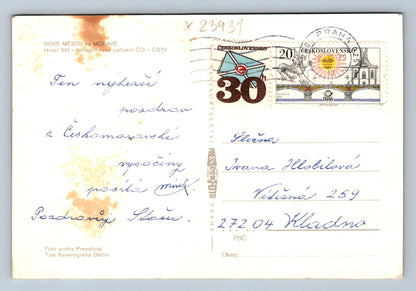 x 23931
NOVÉ MĚSTO NA MORAVĚ
Hotel SKI - tělovýchovné zařízení ČO - ČSTV
ČESKOSLOVENSKO
30
20
ČESKOSLOVENSKO
PRAHA
Ten nejhezčí
pozdrav
z Českomoravské
vysočiny
posílá Mirek
Pozdravuj Stáňu.
PRAHA
Slečna
Ivana Hlobilová
Vítězná 259
272 04 Kladno
PSČ
Okres:
Foto archiv Pressfoto
Tisk Severografia Děčín